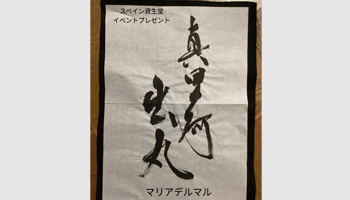 スペイン資生堂
イベントプレゼント
真里阿
出丸
マリアデルマル